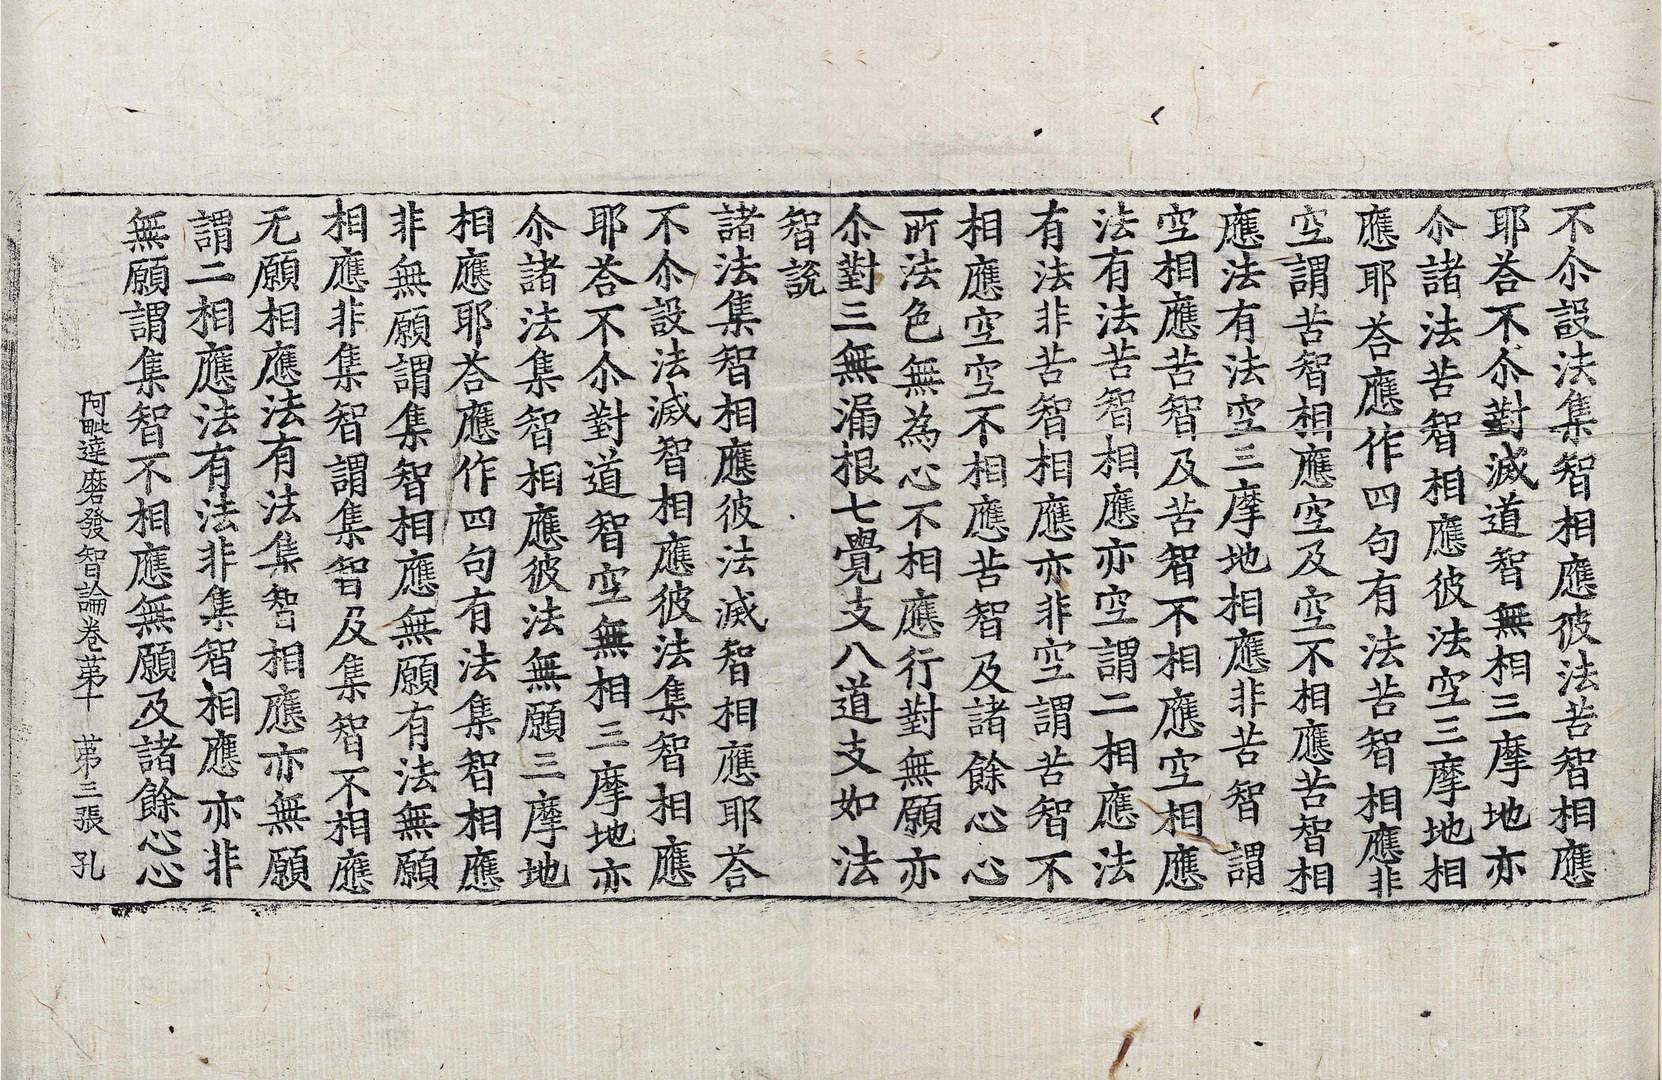 不尒設法集智相應彼法苦智相應
耶荅不尒對滅道智無相三摩地亦
尒諸法苦智相應彼法空三摩地相
應耶荅應作四句有法苦智相應非
空謂苦智相應空及空不相應苦智相
應法有法空三摩地相應非苦智謂
空相應苦智及苦智不相應空相應
法有法苦智相應亦空謂二相應法
有法非苦智相應亦非空謂苦智不
相應空空不相應苦智及諸餘心心
所法色無為心不相應行對無願亦
尒對三無漏根七覺支八道支如法
智說
諸法集智相應彼法滅智相應耶荅
不尒設法滅智相應彼法集智相應
耶荅不尒對道智空無相三摩地亦
尒諸法集智相應彼法無願三摩地
相應耶荅應作四句有法集智相應
非無願謂集智相應無願有法無願
相應非集智謂集智及集智不相應
无願相應法有法集智相應亦無願
謂二相應法有法非集智相應亦非
無願謂集智不相應無願及諸餘心心
阿毗達磨發智論卷苐十 苐三張 孔